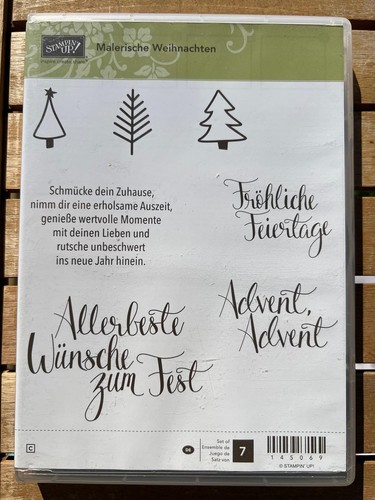 STAMPIN' UP!
Malerische Weihnachten
Schmücke dein Zuhause,
nimm dir eine erholsame Auszeit,
genieße wertvolle Momente
mit deinen Lieben und
rutsche unbeschwert
ins neue Jahr hinein.
Fröhliche
Feiertage
Allerbeste
Wünsche
zum Fest
Advent,
Advent
C
DE
Set of
Ensemble de
Juego de
Satz von
7
145069
© STAMPIN' UP!